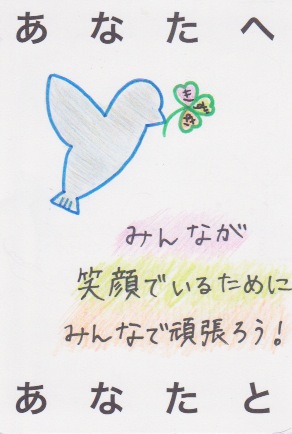 あなたへ
みんなが
笑顔でいるために
みんなで頑張ろう!
あなたと